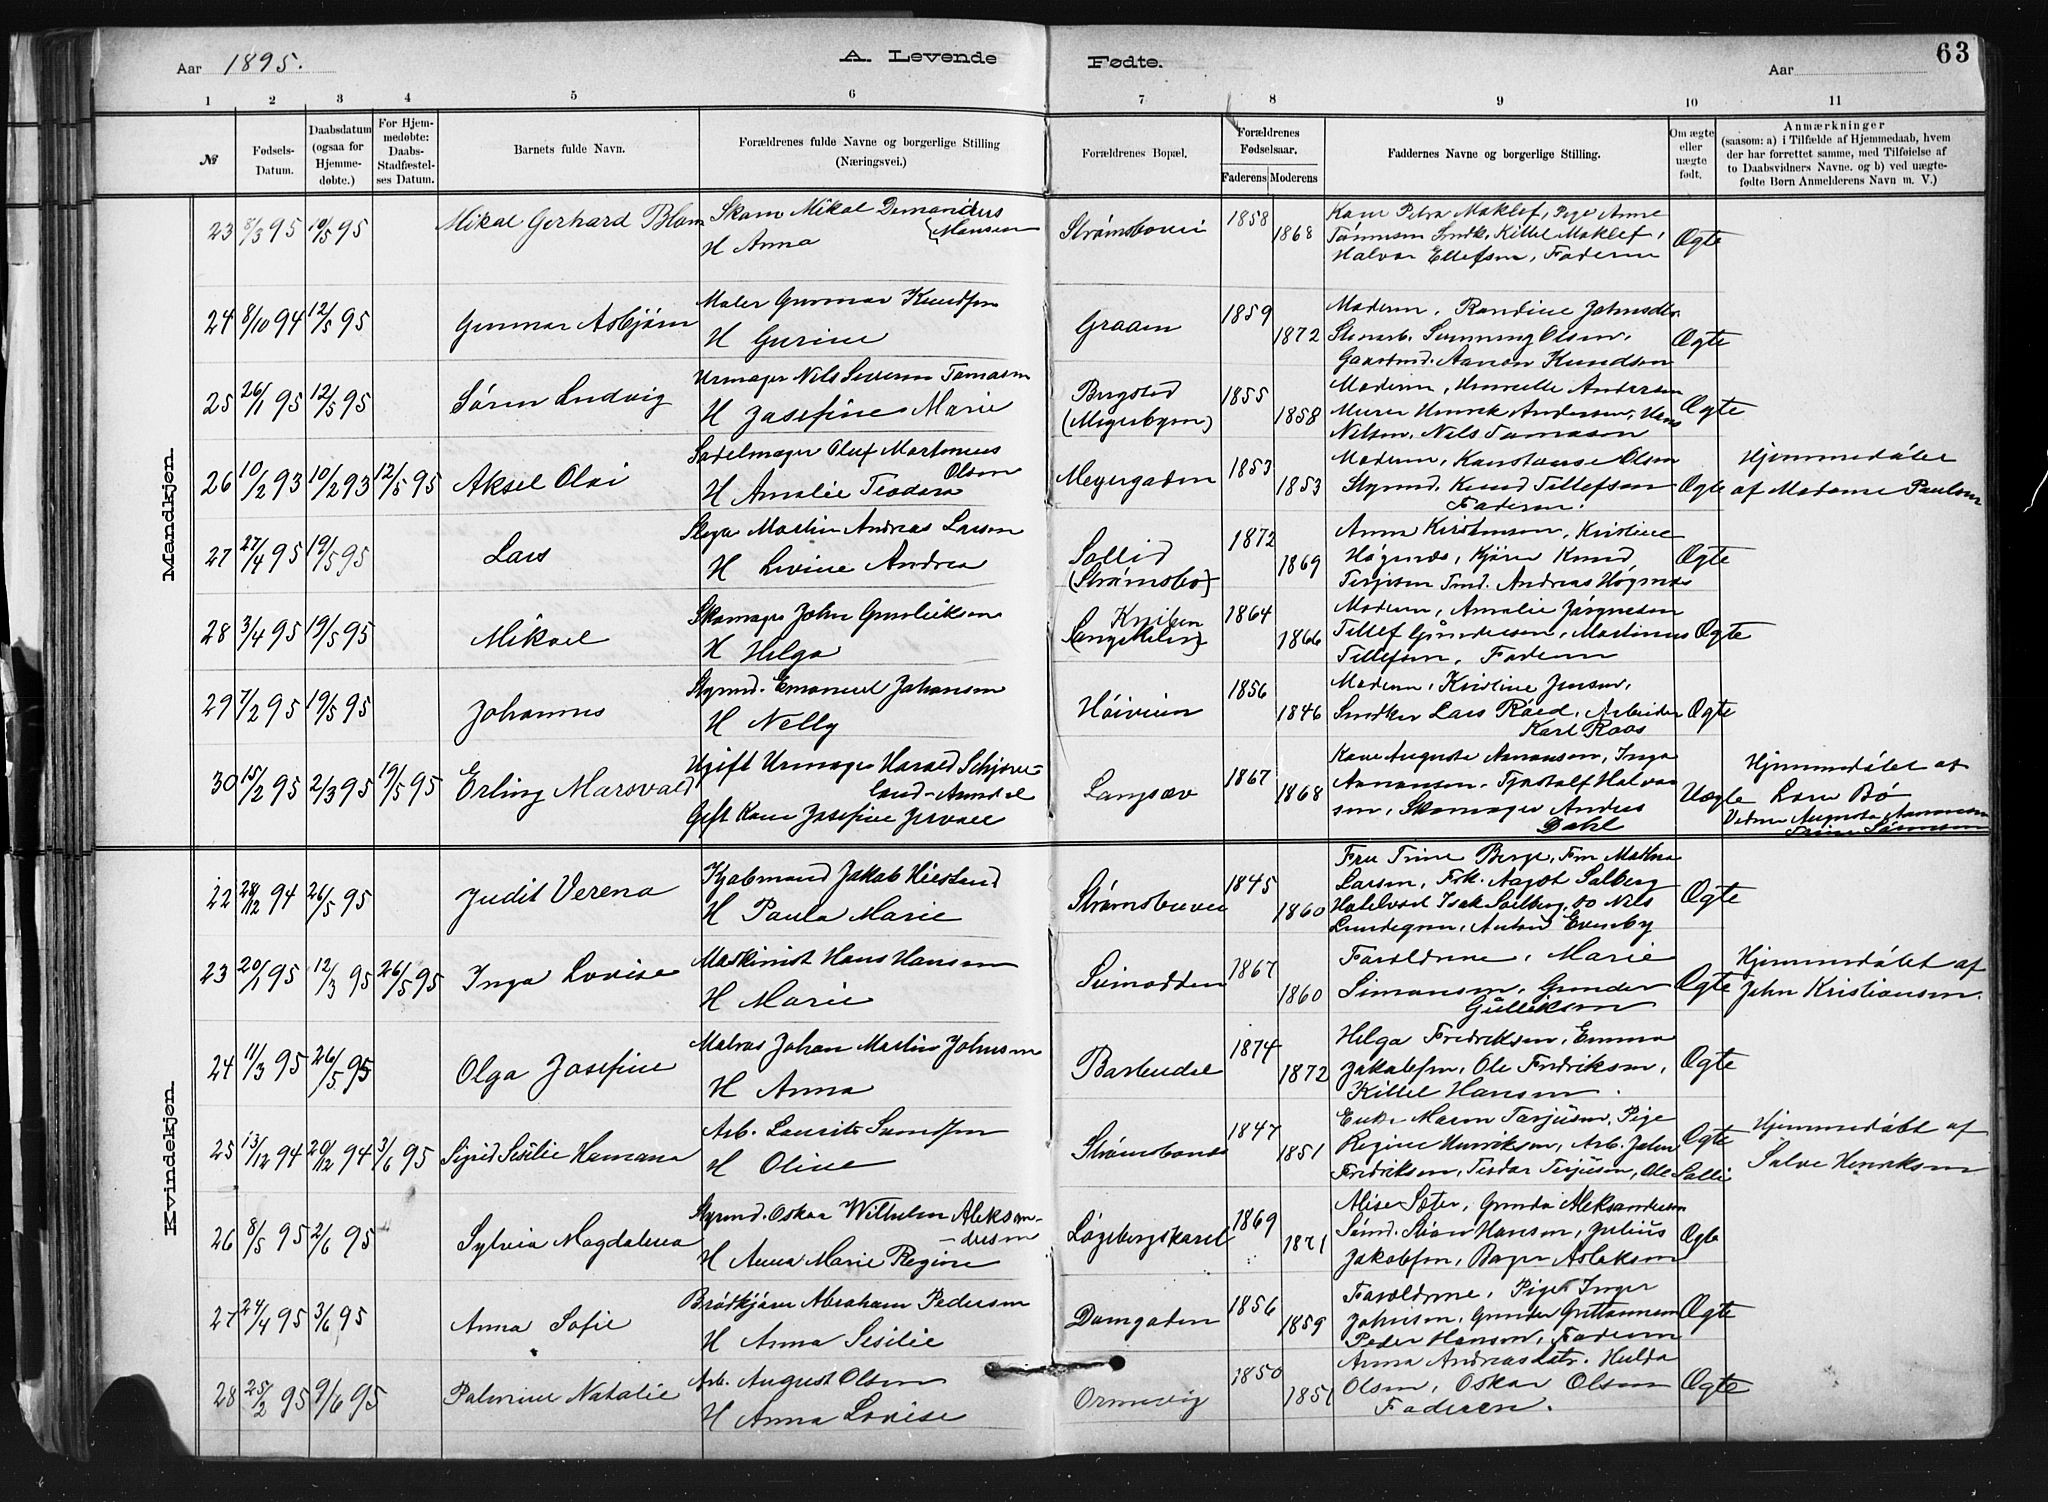 Aar 1895.
A. Levende
Fødte.
Aar
63
1 2 3 4 5 6 7 8 9 10 11
№
Fødsels-Datum.
Daabsdatum (ogsaa for Hjemmedøbte.)
For Hjemmedøbte: Daabs-Stadfæstelses Datum.
Barnets fulde Navn.
Forældrenes fulde Navne og borgerlige Stilling (Næringsvei.)
Forældrenes Bopæl.
Forældrenes Fødselsaar.
Faderens Moderens
Faddernes Navne og borgerlige Stilling.
Om ægte eller uægte født.
Anmærkninger
(saasom: a) i Tilfælde af Hjemmedaab, hvem der har forrettet samme, med Tilføielse af to Daabsvidners Navne. og b) ved uægtefødte Børn Anmelderens Navn m. V.)
Mandkjøn.
23 8/3 95 19/5 95 Mikal Gerhard Blom
Skom Mikal Hansen
H Anna
Strømsbovei 1858 1868
Kone Petra Maklef, Pige Anne
Kittel Maklef,
Halvor Ellefsen, Faderen
Ægte
24 8/10 94 12/5 95 Gunnar Asbjørn
Maler Gunnar Knudsen
H Gurine
Graaen 1859 1872
Moderen, Randine Johnsdtr
Olsen,
Aanon Knudsen
Ægte
25 26/1 95 12/5 95 Søren Ludvig
Urmager Nils Severin Tomasen
H Josefine Marie
Bugsted
(Meyersbyen) 1855 1858
Moderen, Andersen
Murer Henrik Andersen, Hans
Nilsen, Nils Tomasen
Ægte
26 10/2 93 10/2 93 12/5 95 Aksel Olai
Sadelmager Oluf Martinius
Olsen
H Amalie Teodora
Meyergaden 1853 1853
Moderen, Konstanse Olsen
Styrmd. Knud Tellefsen
Faderen.
Ægte
Hjemmedøbt
af Madame Paulsen
27 27/4 95 19/5 95 Lars
Martin Andreas Larsen
H Livine Andrea
Sollid
(Strømsbo) 1872 1869
Anna Kristensen, Kristine
Høgenæs, Kjører Knud
Terjesen Tmd. Andreas Høgenæs
Ægte
28 3/4 95 19/5 95 Mikael
Skomager John Gunleiksen
H Helga
1864 1866
Moderen, Amalie Jørgensen
Tellef Gundersen, Martinus
Tellefsen, Faderen
Ægte
29 7/2 95 19/5 95 Johannes
Styrmd. Emanuel Johansen
H Nelly
Høiveien 1856 1846
Moderen, Kristine Jensen,
Snedker Lars Roed, Arbeider
Karl Roos
Ægte
30 15/2 95 2/3 95 19/5 95 Erling Marsvald
Ugift Urmager Harald Schjøve-
land - Arendal
Gift Kone Josefine
Langsæv 1867 1868
Kone Augusta Aanonsen, Inga
Aanonsen, Halvor-
sen, Skomager Anders
Dahl
Uægte
Hjemmedøbt af
Lars Bø
Vidner Augusta Aanonsen
Kvindekjøn
22 28/12 94 26/5 95 Judit Verena
Kjøbmand Jakob Hiestand
H Paula Marie
Strømsbuvei 1845 1860
Fru Trine Berge, Fru Mathea
Larsen, Frk. Aagot Solberg
Isak Solberg, Nils
Lundegren, Anton Evensby
Ægte
23 20/1 95 12/3 95 26/5 95 Inga Lovise
Maskinist Hans Hansen
H Marie
1867 1860
Forældrene, Marie
Simonsen, Gunder
Gulliksen
Ægte
Hjemmedøbt af
John Kristiansen.
24 11/3 95 26/5 95 Olga Josefine
Matros Johan Martin Johnsen
H Anna
Barbudal 1874 1872
Helga Fredriksen, Emma
Jakobsen, Ole Fredriksen,
Kittel Hansen.
Ægte
25 13/12 94 20/12 94 3/6 95 Sigrid Sisilie Hanana
Arb. Laurits Sundsen
H Oline
1847 1851
Enke Maren Tarjusen, Pige
Regine Henriksen, Arb. John
Fredriksen, Teodor Terjusen, Ole Solli
Ægte
Hjemmedøbt af
Salve Henriksen
26 8/5 95 2/6 95 Sylvia Magdalena
Styrmd. Oskar Wilhelm Aleksan-
-dersen
H Anna Marie Regine
1869 1871
Alise Sæter, Gunda Aleksandersen
Hansen, Julius
Jakobsen, Bager Aslaksen
Ægte
27 24/4 95 3/6 95 Anna Sofie
Brødkjører Abraham Pedersen
H Anna Sisilie
Damgaden 1856 1859
Forældrene, Pige Inger
Johnsen, Gunder Guttormsen
Peder Hansen, Faderen
Ægte
28 25/2 95 9/6 95 Palmine Natalie
Arb. August Olsen
H Anna Lovise
Ormevig 1850 1851
Anna Andreasdatr. Hulda
Olsen, Oskar Olsen
Faderen.
Ægte